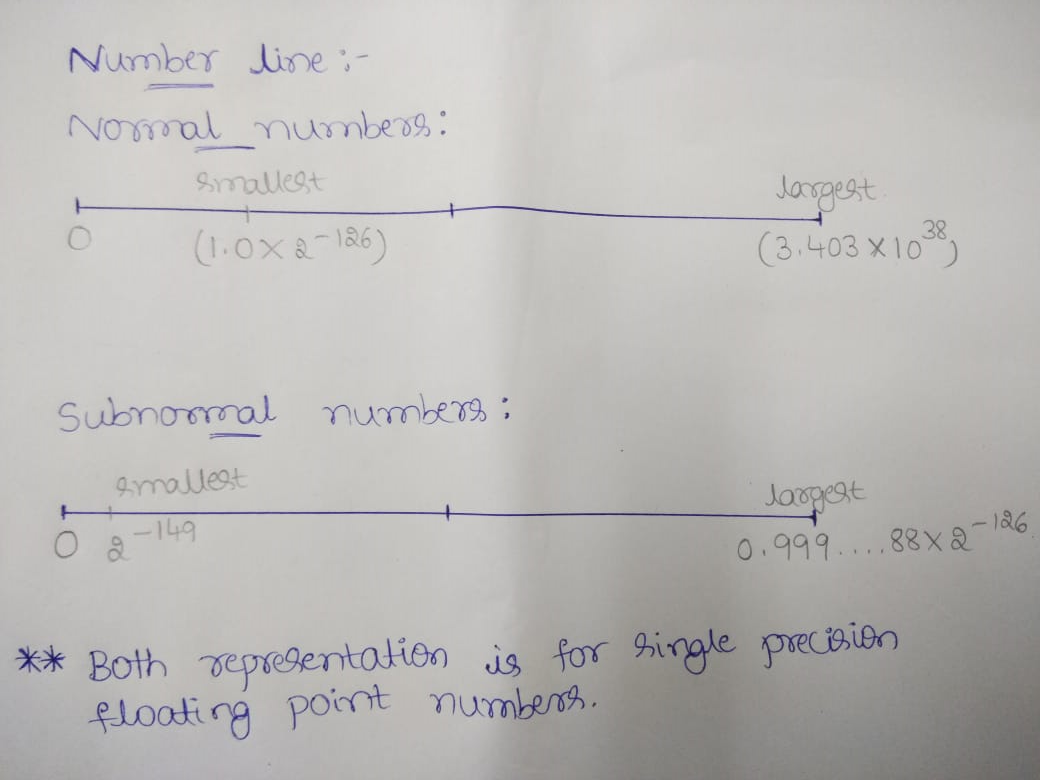 Number line :-
Normal numbers:
smallest largest
0 (1.0 × 2^-126) (3.403 × 10^38)
Subnormal numbers:
smallest largest
0 2^-149 0.999....88 × 2^-126
** Both representation is for single precision
floating point numbers.